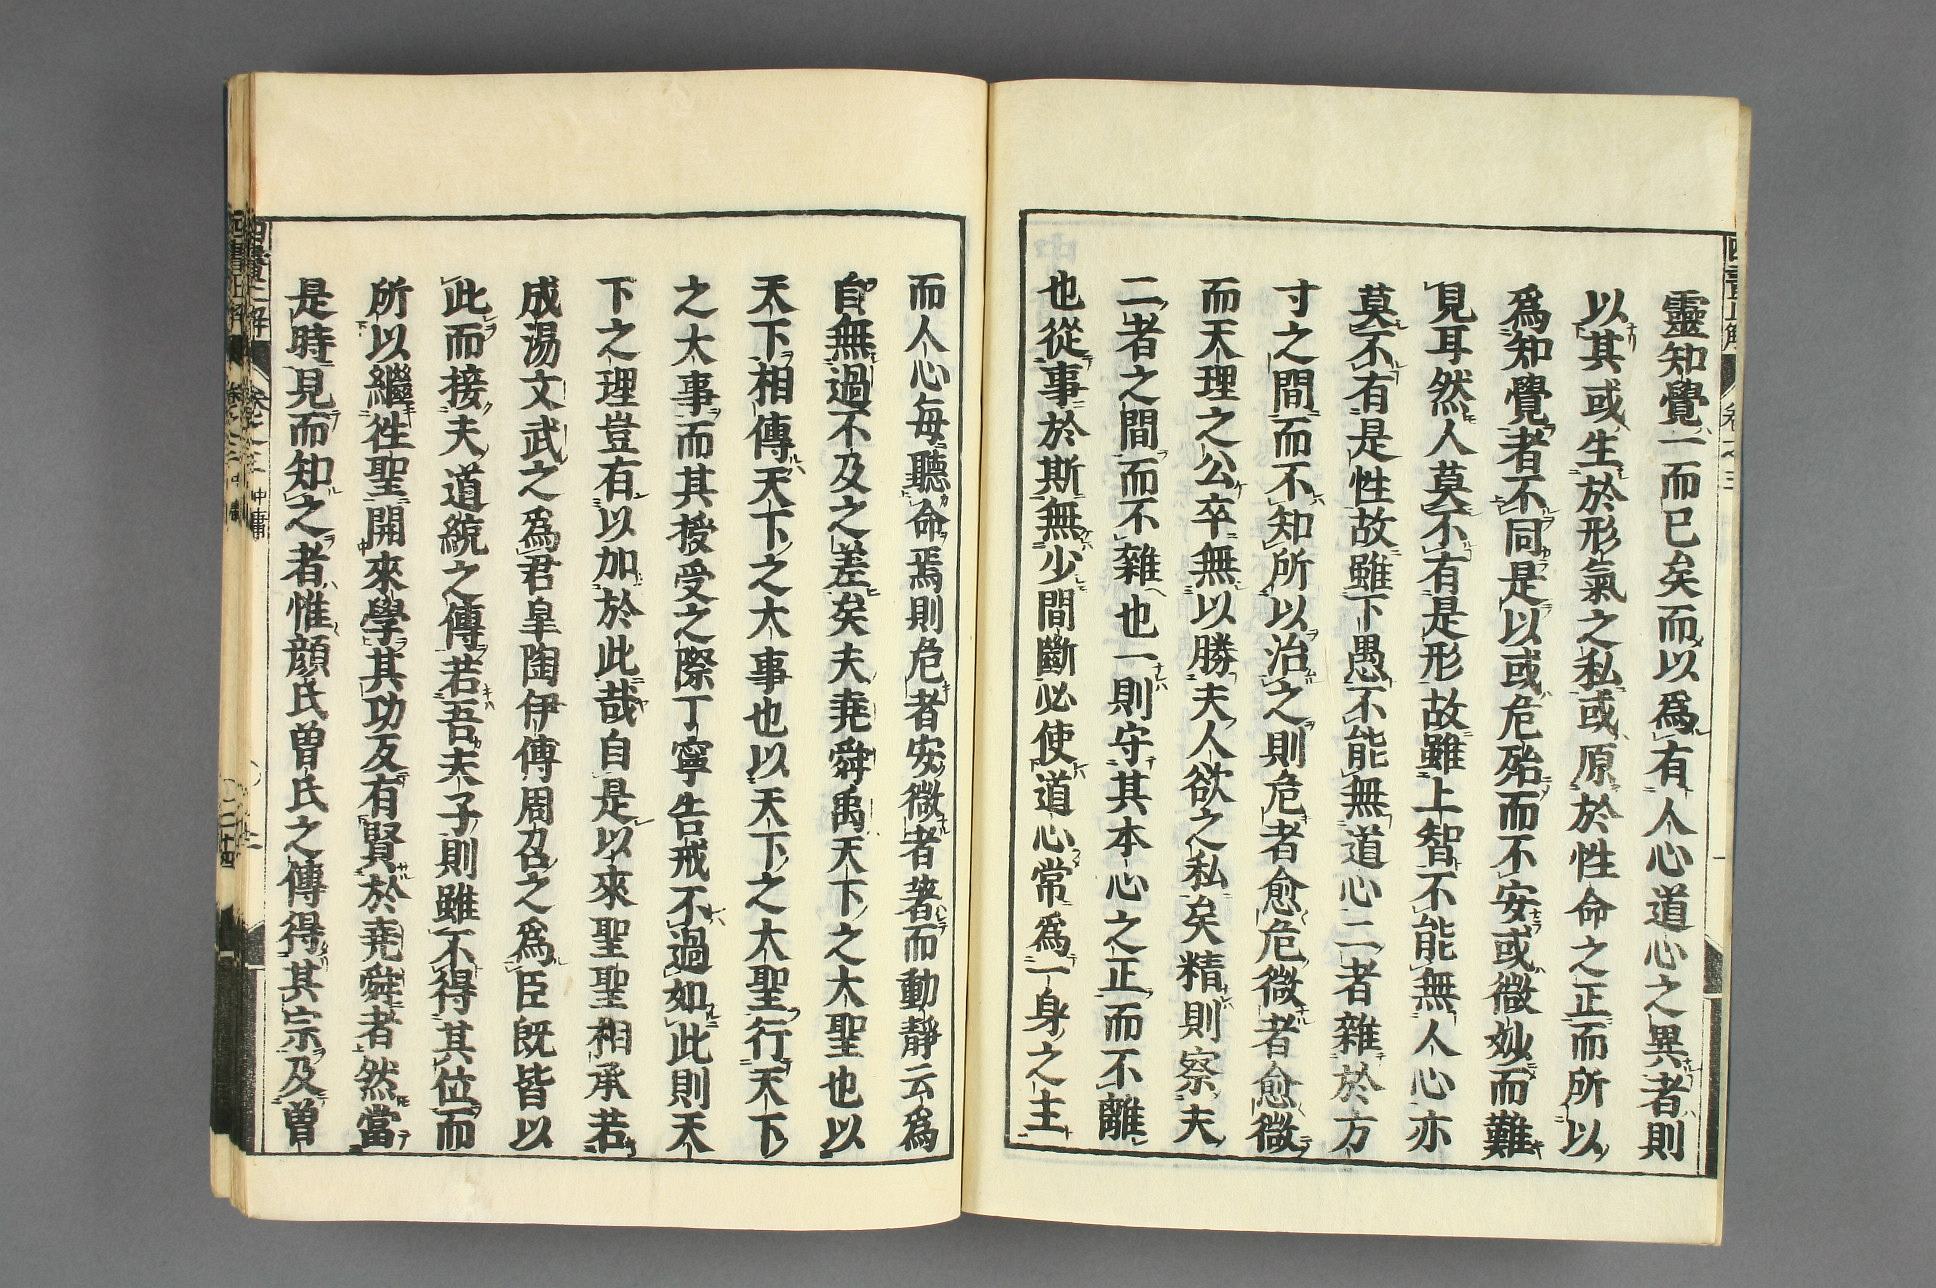 靈知覺一而已矣而以爲有人心道心之異者則
以其或生於形氣之私或原於性命之正而所以
爲知覺者不同是以或危殆而不安或微妙而難
見耳然人莫不有是形故雖上智不能無人心亦
莫不有是性故雖下愚不能無道心二者雜於方
寸之間而不知所以治之則危者愈危微者愈微
而天理之公卒無以勝夫人欲之私矣精則察夫
二者之間而不雜也一則守其本心之正而不離
也從事於斯無少間斷必使道心常爲一身之主
而人心每聽命焉則危者安微者著而動靜云爲
自無過不及之差矣夫堯舜禹天下之大聖也以
天下相傳天下之大事也以天下之大聖行天下
之大事而其授受之際丁寧告戒不過如此則天
下之理豈有以加於此哉自是以來聖聖相承若
成湯文武之爲君皐陶伊傅周召之爲臣既皆以
此而接夫道統之傳若吾夫子則雖不得其位而
所以繼徃聖開來學其功反有賢於堯舜者然當
是時見而知之者惟顔氏曾氏之傳得其宗及曾